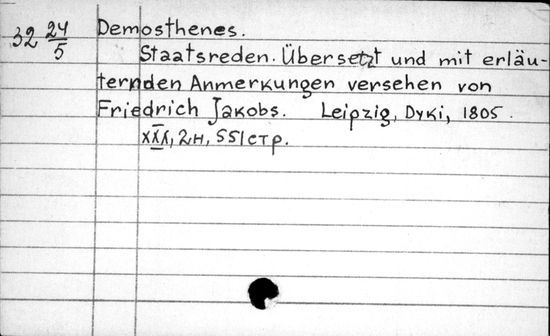 32 24/5
Demosthenes.
Staatsreden. Übersetzt und mit erläu-
ternden Anmerkungen versehen von
Friedrich Jakobs. Leipzig, Dyki, 1805.
XXX, 2н, 551стр.